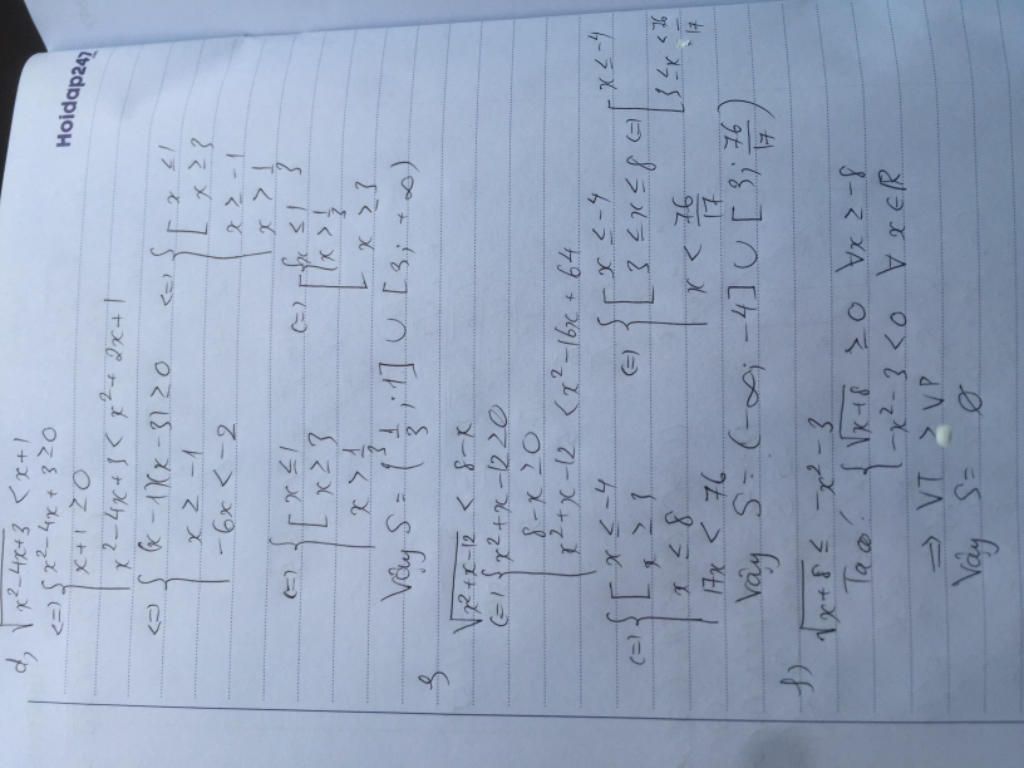 Hoidap247
d, √(x²-4x+3) < x+1
<=> { x²-4x+3 ≥ 0
x+1 ≥ 0
x²-4x+3 < x²+2x+1
<=> { (x-1)(x-3) ≥ 0 <=> { [ x ≤ 1
x ≥ -1 x ≥ 3
-6x < -2 x ≥ -1
x > 1/3
<=> { [ x ≤ 1 <=> [ { x ≤ 1
x ≥ 3 x > 1/3
x > 1/3 x ≥ 3
Vậy S = (1/3; 1] ∪ [3; +∞)
√(x²+x-12) < 8-x
<=> { x²+x-12 ≥ 0
8-x ≥ 0
x²+x-12 < x²-16x+64
<=> { [ x ≤ -4 <=> { [ x ≤ -4 <=> [ x ≤ -4
x ≥ 3 3 ≤ x ≤ 8 3 ≤ x < 76/17
x ≤ 8 x < 76/17
17x < 76
Vậy S = (-∞; -4] ∪ [3; 76/17)
f) √(x+8) ≤ -x²-3
Ta có: { √(x+8) ≥ 0 ∀x ≥ -8
-x²-3 < 0 ∀x ∈ R
=> VT > VP
Vậy S = ∅